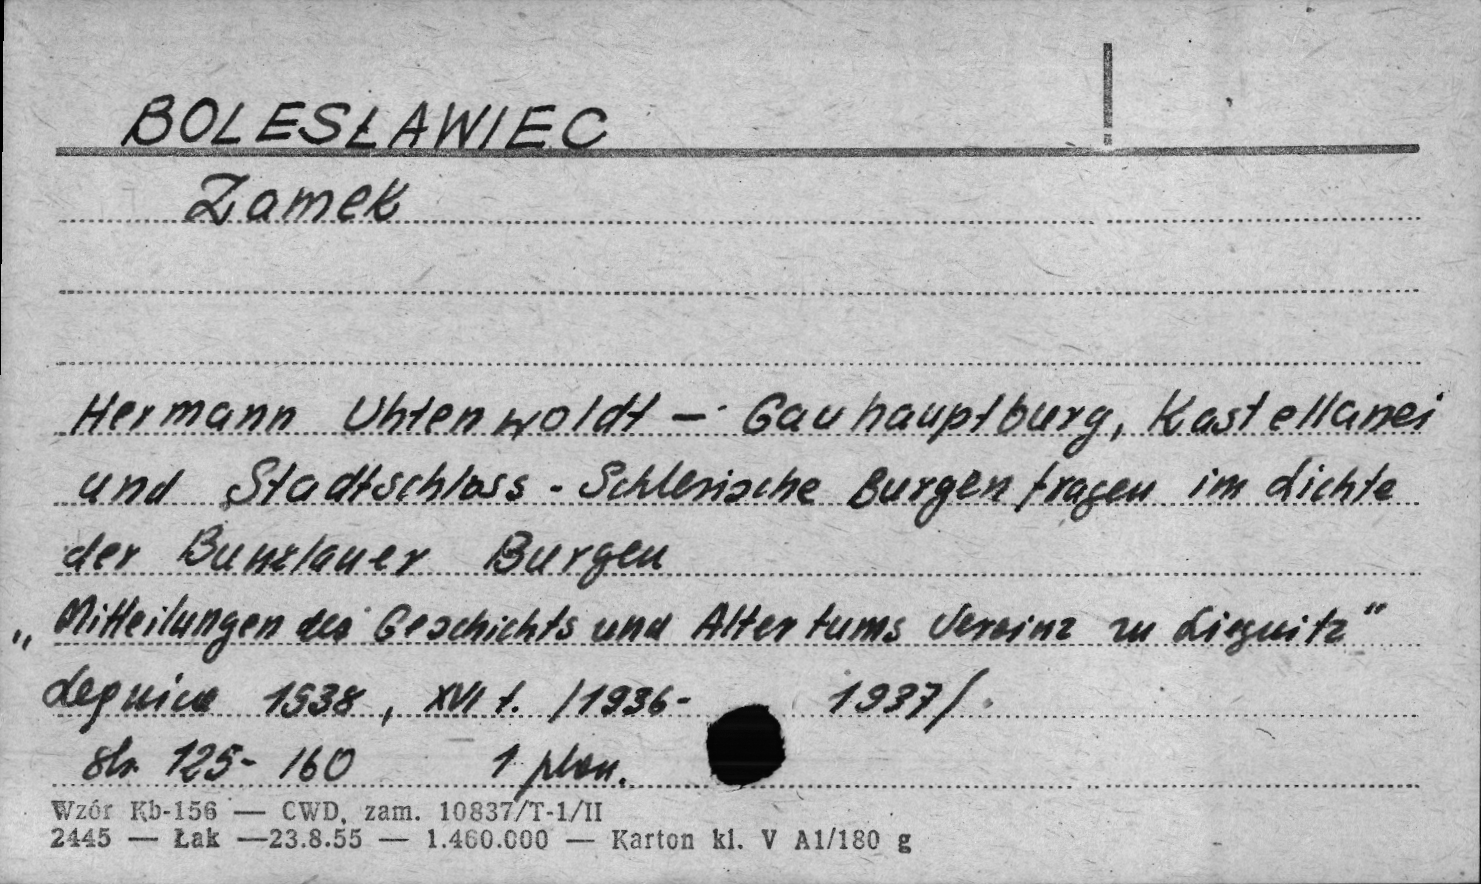 BOLESŁAWIEC
Zamek
Hermann Uhtenwoldt - Gauhauptburg, Kastellanei
und Stadtschloss - Schlesische Burgenfragen im Lichte
der Bunzlauer Burgen
„Mitteilungen des Geschichts und Altertums Vereins zu Liegnitz"
Legnica 1938, XVI t. /1936- 1937/.
str. 125-160 1 plan.
Wzór Kb-156 — CWD, zam. 10837/T-1/II
2445 — Łak —23.8.55 — 1.460.000 — Karton kl. V A1/180 g